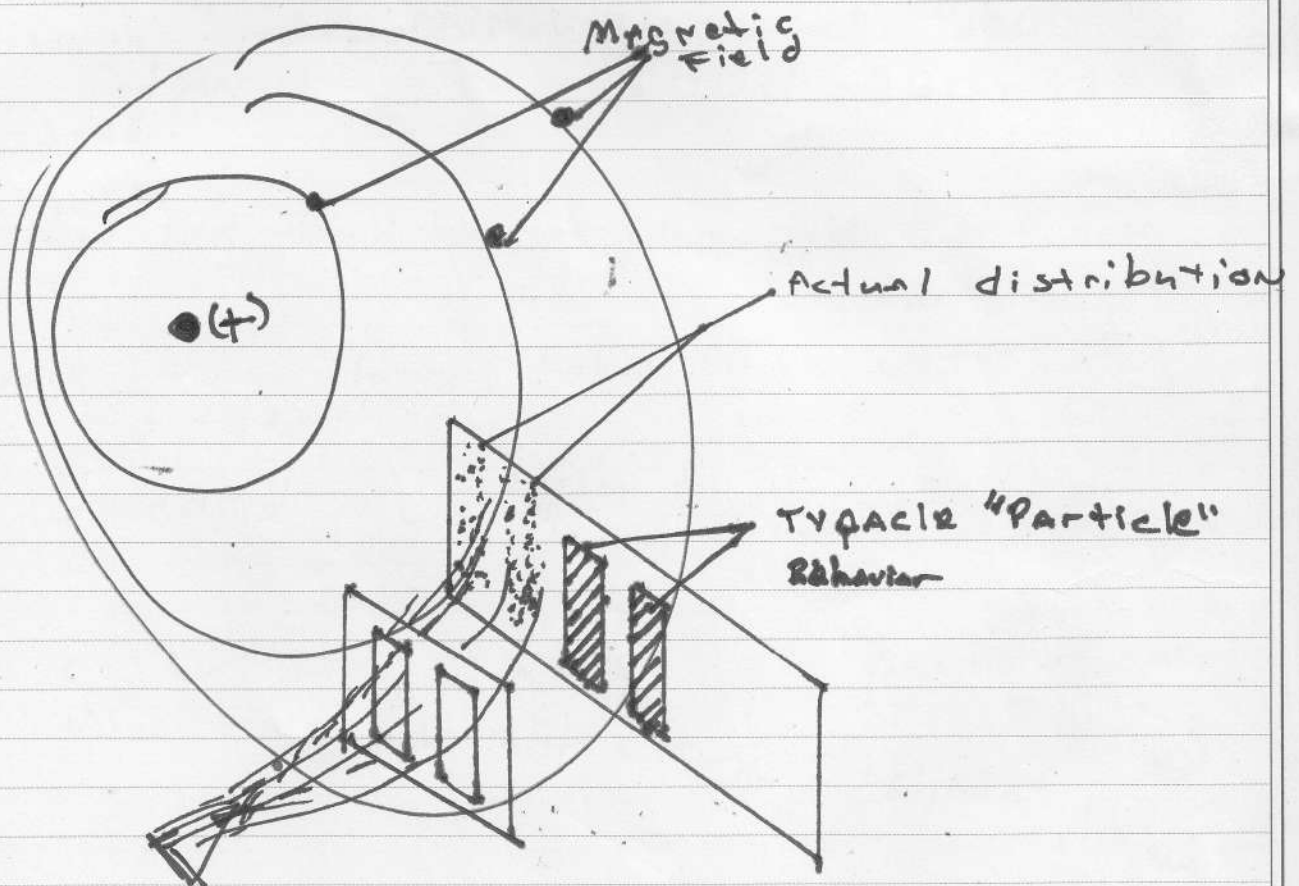 Magnetic
Field
(+)
Actual distribution
Typacle "Particle"
Behavior